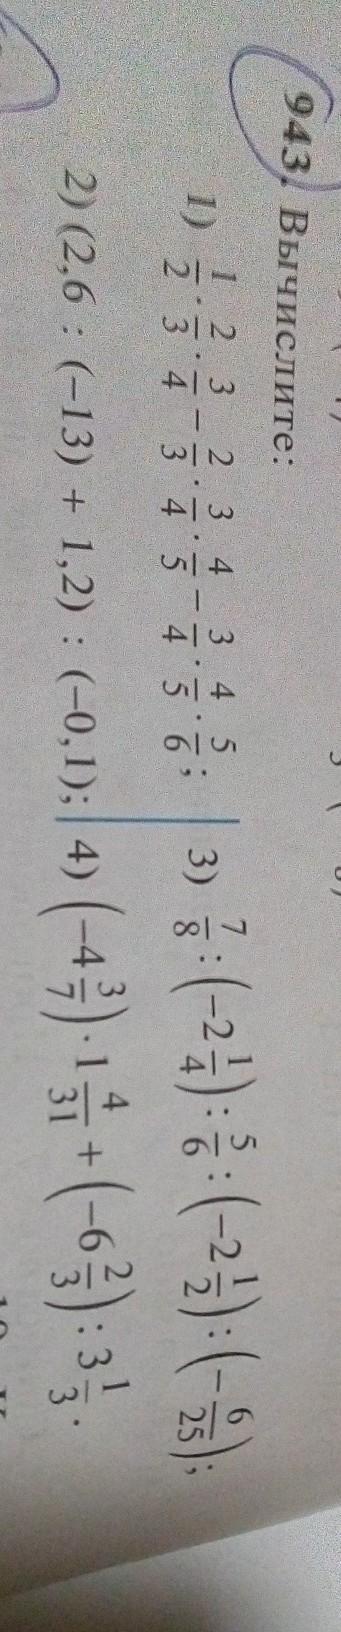 943. Вычислите:
1) 1/2 · 2/3 · 3/4 − 2/3 · 3/4 · 4/5 − 3/4 · 4/5 · 5/6;
2) (2,6 : (−13) + 1,2) : (−0,1);
3) 7/8 : (−2 1/4) : 5/6 : (−2 1/2) : (−6/25);
4) (−4 3/7) · 1 4/31 + (−6 2/3) : 3 1/3.